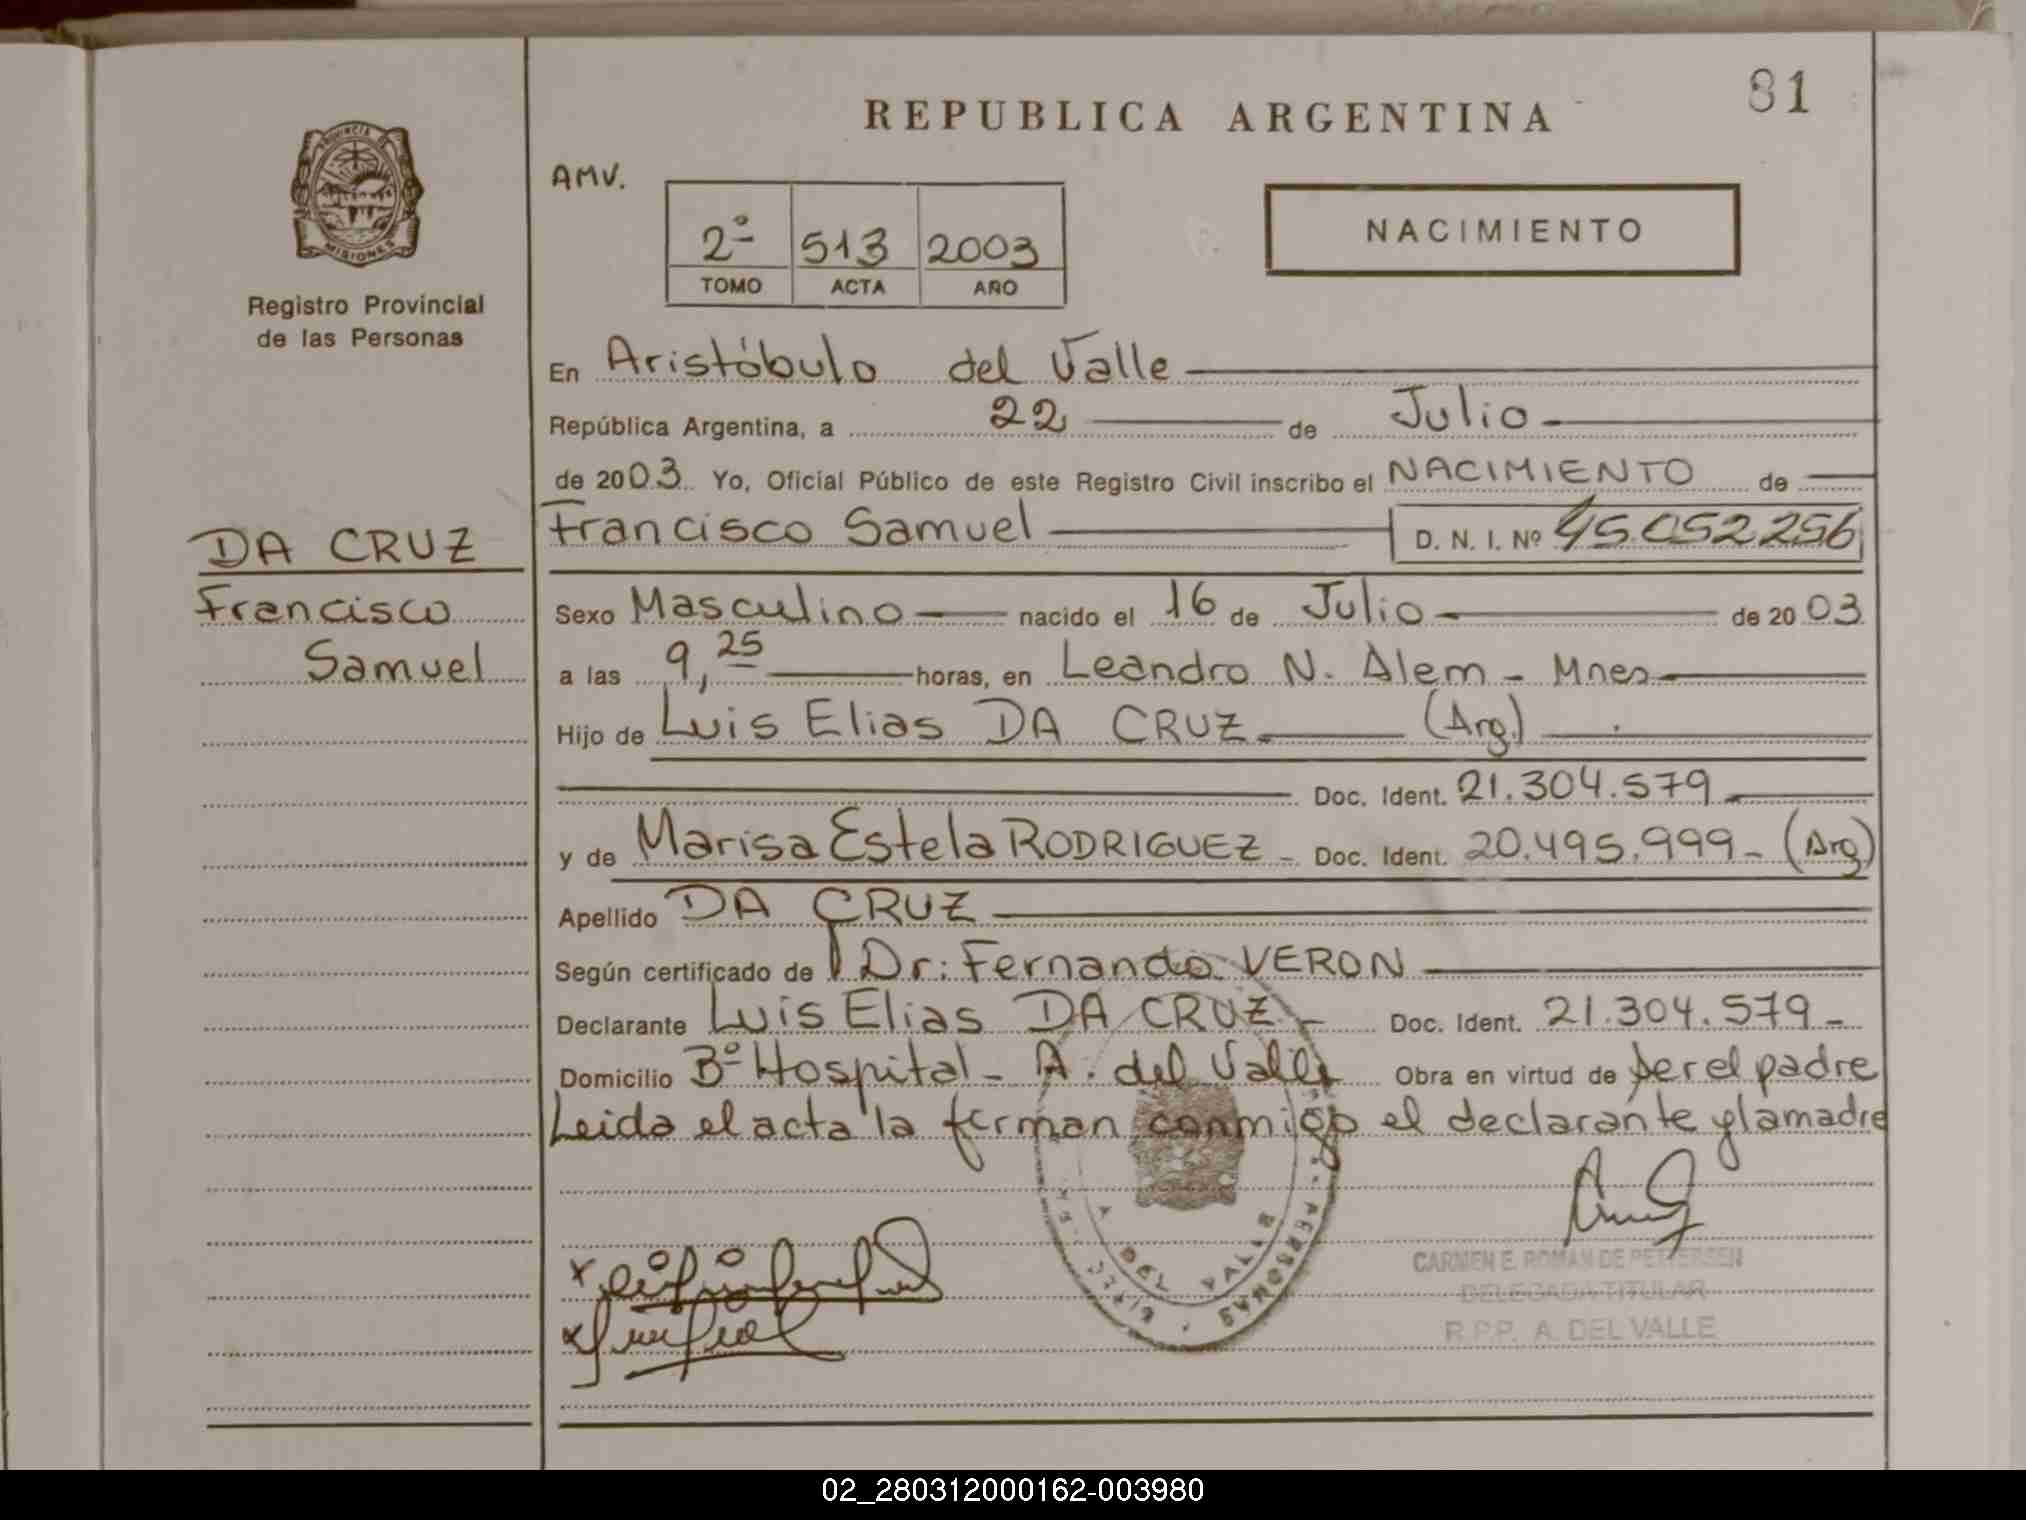 81
REPUBLICA ARGENTINA
PROVINCIA DE
MISIONES
Registro Provincial
de las Personas
AMV.
2º 513 2003
TOMO ACTA AÑO
NACIMIENTO
En Aristóbulo del Valle
República Argentina, a 22 de Julio
de 2003. Yo, Oficial Público de este Registro Civil inscribo el NACIMIENTO de
DA CRUZ
Francisco
Samuel
Francisco Samuel D. N. I. Nº 45.052.256
Sexo Masculino nacido el 16 de Julio de 2003
a las 9,25 horas, en Leandro N. Alem - Mnes
Hijo de Luis Elias DA CRUZ (Arg.)
Doc. Ident. 21.304.579
y de Marisa Estela RODRIGUEZ - Doc. Ident. 20.495.999 - (Arg)
Apellido DA CRUZ
Según certificado de Dr: Fernando VERON
Declarante Luis Elias DA CRUZ - Doc. Ident. 21.304.579 -
Domicilio Bº Hospital - A. del Valle Obra en virtud de ser el padre
Leida el acta la firman conmigo el declarante y la madre
A. DEL VALLE
PERSONAS
CARMEN E. ROMAN DE PETTERSEN
DELEGADA TITULAR
R.P.P. A. DEL VALLE
02_280312000162-003980